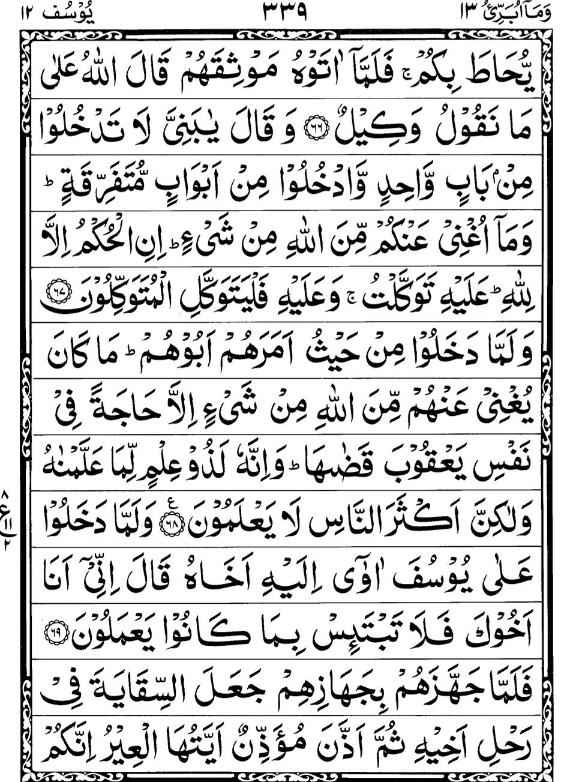 وَمَاۤ اُبَرِّئُ ١٣ ٣٣٩ یُوْسُف ١٢
یُّحَاطَ بِكُمْ ۚ فَلَمَّاۤ اٰتَوْهُ مَوْثِقَهُمْ قَالَ اللّٰهُ عَلٰی
مَا نَقُوْلُ وَكِیْلٌ ﴿٦٦﴾ وَ قَالَ یٰبَنِیَّ لَا تَدْخُلُوْا
مِنْۢ بَابٍ وَّاحِدٍ وَّادْخُلُوْا مِنْ اَبْوَابٍ مُّتَفَرِّقَةٍ ؕ
وَمَاۤ اُغْنِیْ عَنْكُمْ مِّنَ اللّٰهِ مِنْ شَیْءٍ ؕ اِنِ الْحُكْمُ اِلَّا
لِلّٰهِ ؕ عَلَیْهِ تَوَكَّلْتُ ۚ وَعَلَیْهِ فَلْیَتَوَكَّلِ الْمُتَوَكِّلُوْنَ ﴿٦٧﴾
وَلَمَّا دَخَلُوْا مِنْ حَیْثُ اَمَرَهُمْ اَبُوْهُمْ ؕ مَا كَانَ
یُغْنِیْ عَنْهُمْ مِّنَ اللّٰهِ مِنْ شَیْءٍ اِلَّا حَاجَةً فِیْ
نَفْسِ یَعْقُوْبَ قَضٰىهَا ؕ وَاِنَّهٗ لَذُوْ عِلْمٍ لِّمَا عَلَّمْنٰهُ
وَلٰكِنَّ اَكْثَرَ النَّاسِ لَا یَعْلَمُوْنَ ﴿٦٨﴾ ع وَلَمَّا دَخَلُوْا
٨
ع ١١
٢
عَلٰی یُوْسُفَ اٰوٰۤی اِلَیْهِ اَخَاهُ قَالَ اِنِّیْۤ اَنَا
اَخُوْكَ فَلَا تَبْتَىِٕسْ بِمَا كَانُوْا یَعْمَلُوْنَ ﴿٦٩﴾
فَلَمَّا جَهَّزَهُمْ بِجَهَازِهِمْ جَعَلَ السِّقَایَةَ فِیْ
رَحْلِ اَخِیْهِ ثُمَّ اَذَّنَ مُؤَذِّنٌ اَیَّتُهَا الْعِیْرُ اِنَّكُمْ